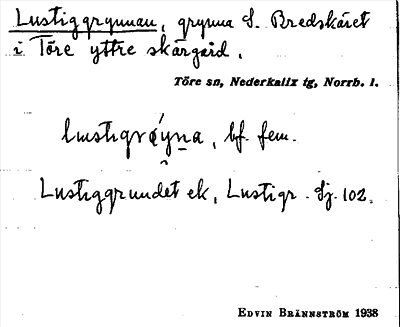 Lustiggrynnan, grynna S. Bredskäret
i Töre yttre skärgård.
Töre sn, Nederkalix tg, Norrb. l.
bf. fem.
Lustiggrundet ek, Lustigr. Sj. 102.
EDVIN BRÄNNSTRÖM 1938